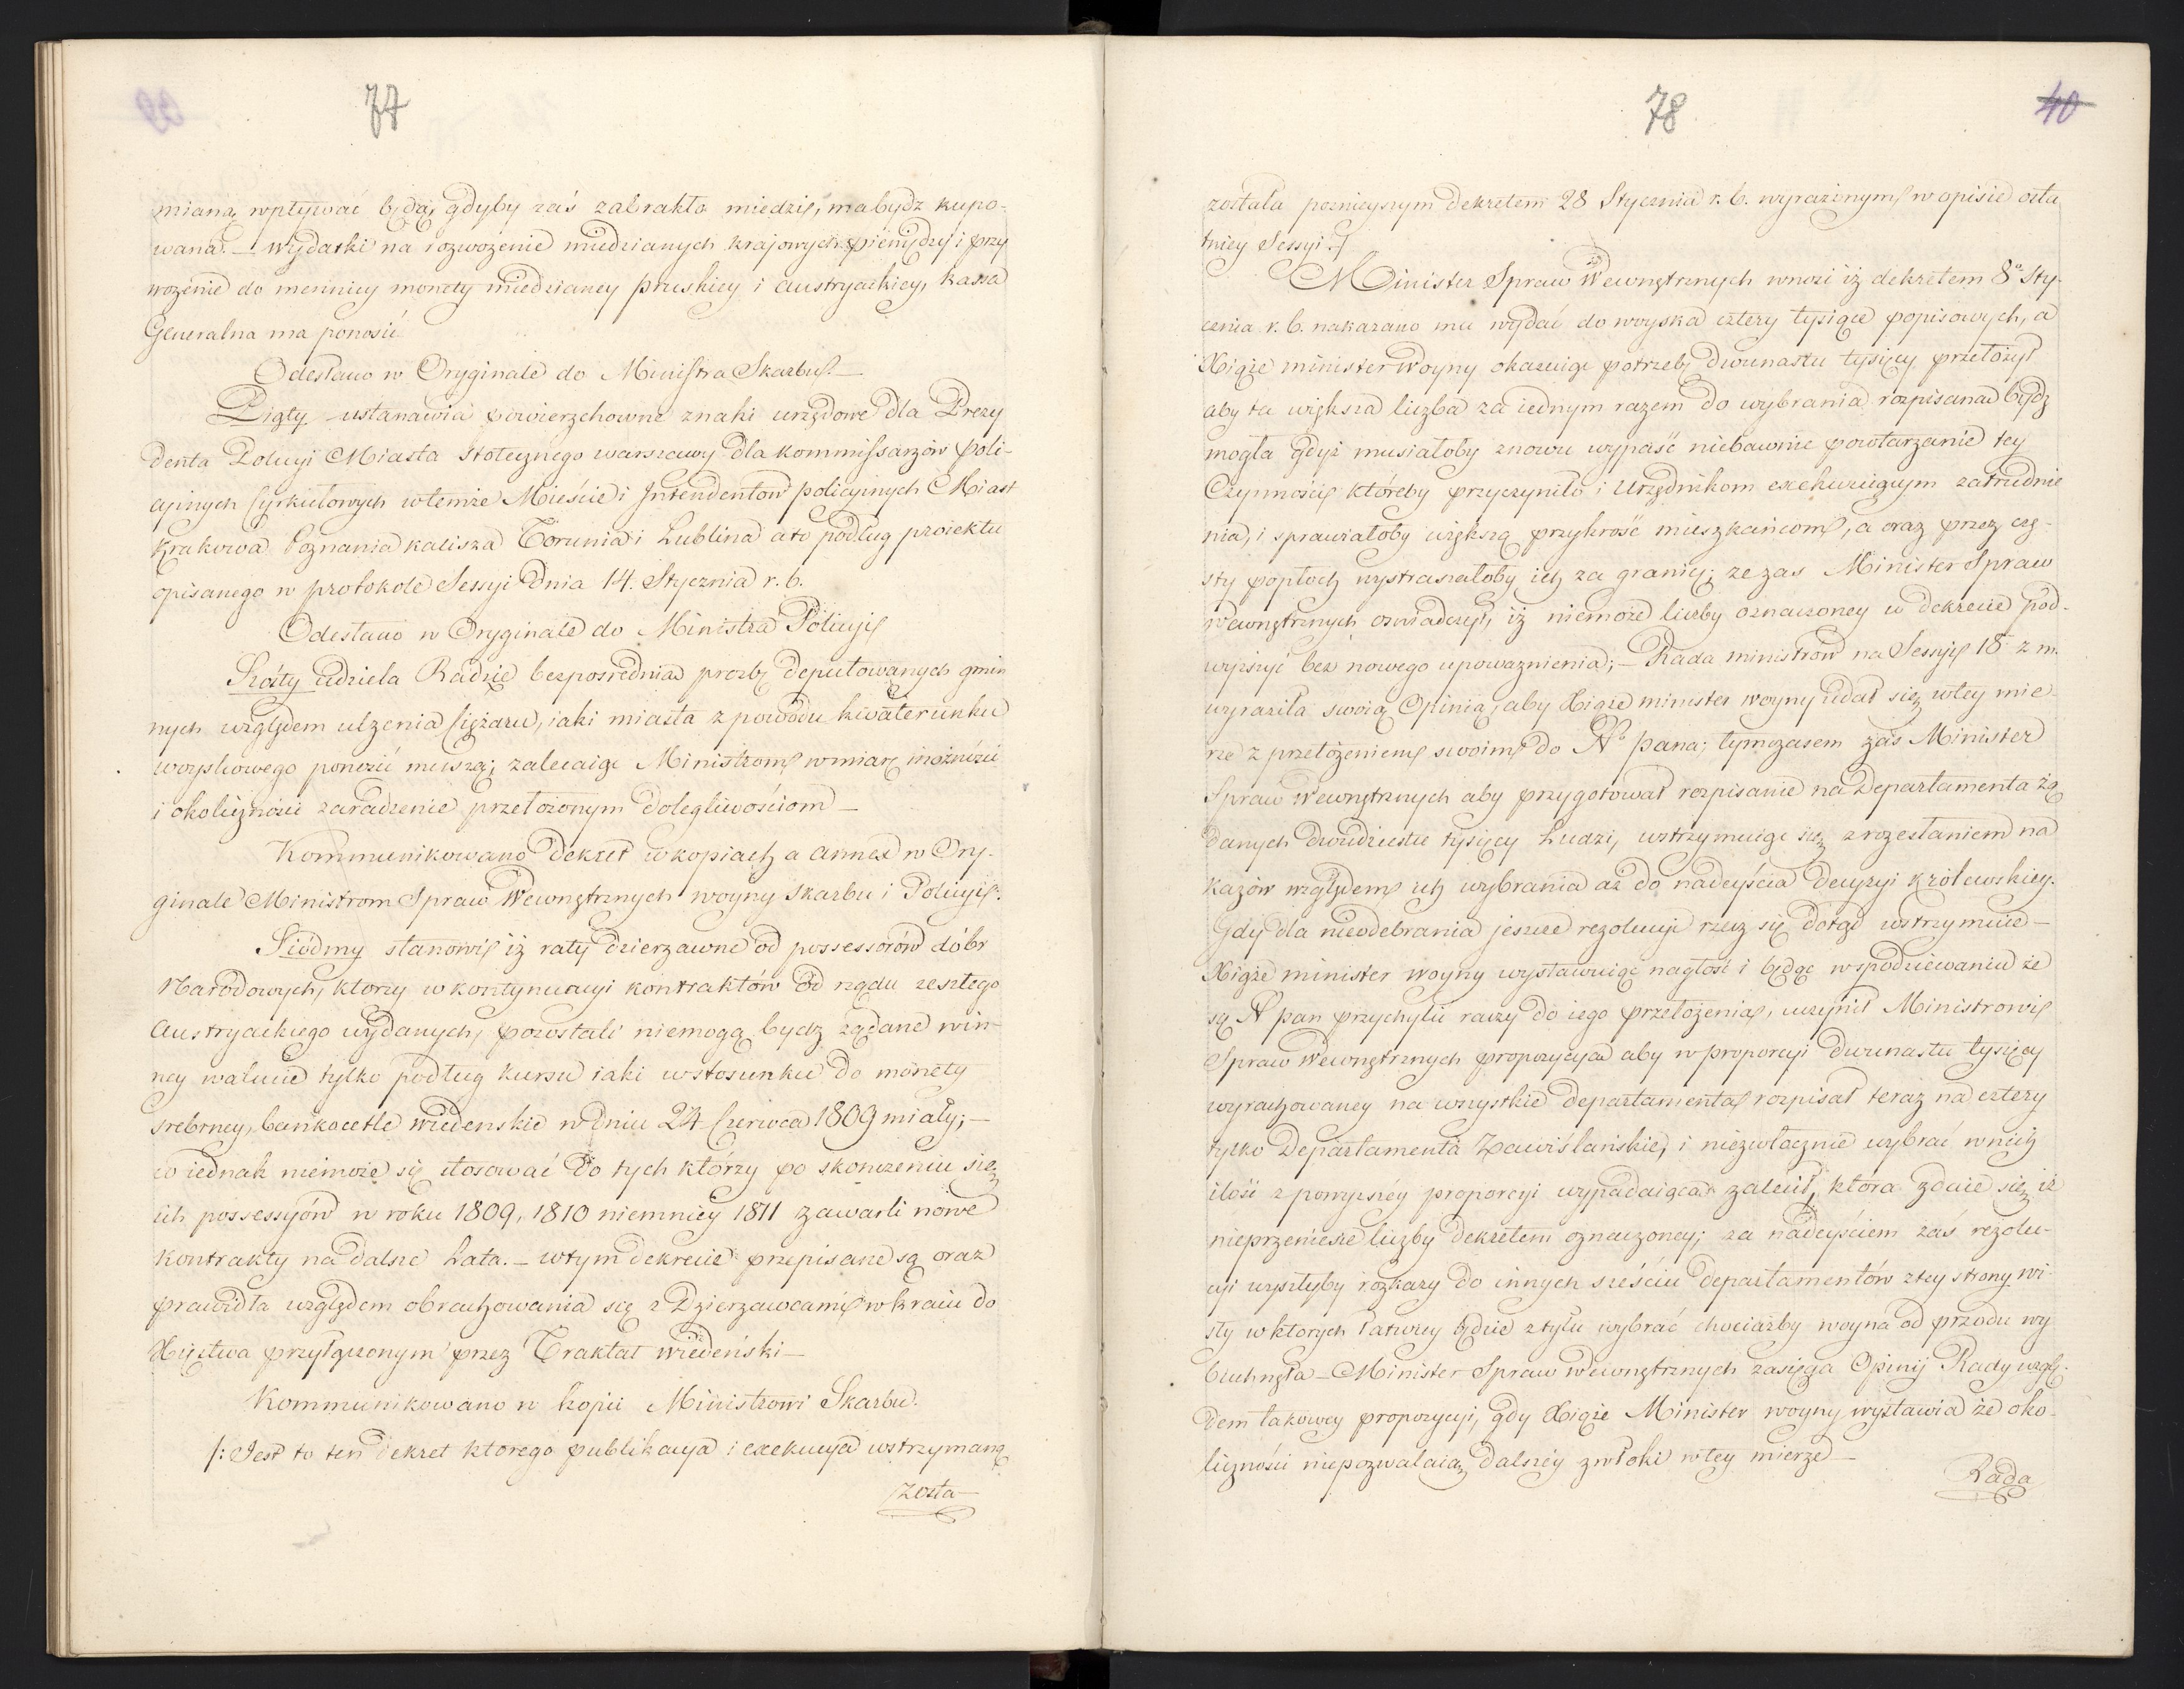 77
mianą wpływać będą, gdyby zaś zabrakło miedzi, ma bydz kupo-
wana. — Wydatki na rozwożenie miedzianych krajowych pieniędzy i przy
wożenie do mennicy monety miedzianey pruskiey i austryackiey, kassa
Generalna ma ponosić
Odesłano w Oryginale do Ministra Skarbu. —
Piąty ustanawia powierzchowne znaki urzędowe dla Prezy
denta Policyi Miasta stołecznego warszawy dla kommissarzów poli-
cyinych Cyrkułowych w temże Mieście i Intendentow policyinych Miast
Krakowa Poznania kalisza Torunia i Lublina a to podług proiektu
opisanego w protokole Sessyi Dnia 14. Stycznia r. b.
Odesłano w Oryginale do Ministra Policyi
Szósty udziela Radzie bezpośrednia prozbę deputowanych gmin
nych względem ulżenia Ciężaru, iaki miasta z powodu kwaterunku
woyskowego ponosić muszą; zalecaiąc Ministrom w miarę możności
i okoliczności zaradzenie przełożonym dolegliwościom —
Kommunikowano Dekret w kopiach a annex w Ory-
ginale Ministrom Spraw Wewnętrznych woyny skarbu i Policyi.
Siódmy stanowi iż raty dzierzawne od possessorów dóbr
Narodowych, ktorzy w kontynuacyi kontraktów od rządu zeszłego
Austryackiego wydanych, pozostali niemogą bydz żądane w in-
ney walucie tylko podług kursu iaki w stosunku do monety
srebrney, bankocetle wiedenskie w dniu 24 Czerwca 1809 miały; —
co iednak niemoże się stosować do tych którzy po skonczeniu się
ich possessyów w roku 1809, 1810 niemniey 1811 zawarli nowe
kontrakty na dalsze Lata. — w tym dekrecie przepisane są oraz
prawidła względem obrachowania się z Dzierzawcami w kraiu do
Xięstwa przyłączonym przez Traktat wiedeński —
Kommunikowano w kopii Ministrowi Skarbu.
/: Jest to ten dekret ktorego publikacya i exekucya wstrzymaną
zosta—
78
40
została poznieyszym dekretem 28 Stycznia r. b. wyrażonym w opisie osta
tniey Sessyi :/
Minister Spraw Wewnętrznych wnosi iż dekretem 8° Sty-
cznia r. b. nakazano mu wydać do woyska cztery tysiące popisowych, a
Xiąże minister Woyny okazuiąc potrzebę dwunastu tysięcy przełożył
aby ta większa liczba za iednym razem do wybrania rozpisana bydz
mogła gdyż musiałoby znowu wypaść niebawnie powtarzanie tey
Czynności, któreby przyczyniło i Urzędnikom exekwuiącym zatrudnie
nia, i sprawiałoby większą przykrość mieszkańcom, a oraz przez czę-
sty popłoch wystraszałoby ich za granicę; ze zas Minister Spraw
wewnętrznych oświadczył, iż niemoże liczby oznaczoney w dekrecie pod-
wyższyć bez nowego upowaznienia; — Rada ministrów na Sessyi 18 z. m.
wyraziła swoią Opinią, aby Xiąże minister woyny udał się w tey mie-
rze z przełożeniem swoim do N° pana; tymczasem zaś Minister
Spraw Wewnętrznych aby przygotował rozpisanie na Departamenta żą
danych dwudziestu tysięcy Ludzi, wstrzymuiąc się z rozesłaniem na
kazów względem ich wybrania aż do nadeyścia Decyzyi królewskiey.
Gdy dla nieodebrania jeszcze rezolucyi rzecz się dotąd wstrzymuie —
Xiąże minister woyny wystawuiąc nagłość i będąc w spodziewaniu że
się N pan przychylić raczy do iego przełożenia, uczynił Ministrowi
Spraw wewnętrznych propozycya aby w proporcyi dwunastu tysięcy
wyrachowaney na wszystkie departamenta rozpisał teraz na cztery
tylko Departamenta Zawiślańskie, i niezwłacznie wybrać w nich
ilość z powyższéy proporcyi wypadaiąca zalecił, która zdaie się iż
nieprzeniesie liczby dekretem oznaczoney; za nadeyściem zaś rezolu-
cyi wyszłyby rozkazy do innych sześciu departamentów z tey strony wi-
sły w ktorych łatwiey będzie z tyłu wybrać chociażby woyna od przodu wy
buchnęła — Minister Spraw wewnętrznych zasięga Opinij Rady wzglę-
dem takowey propozycyi, gdy Xiąże Minister woyny wystawia że oko-
liczności niepozwalaią dalszéy zwłoki w tey mierze —
Rada